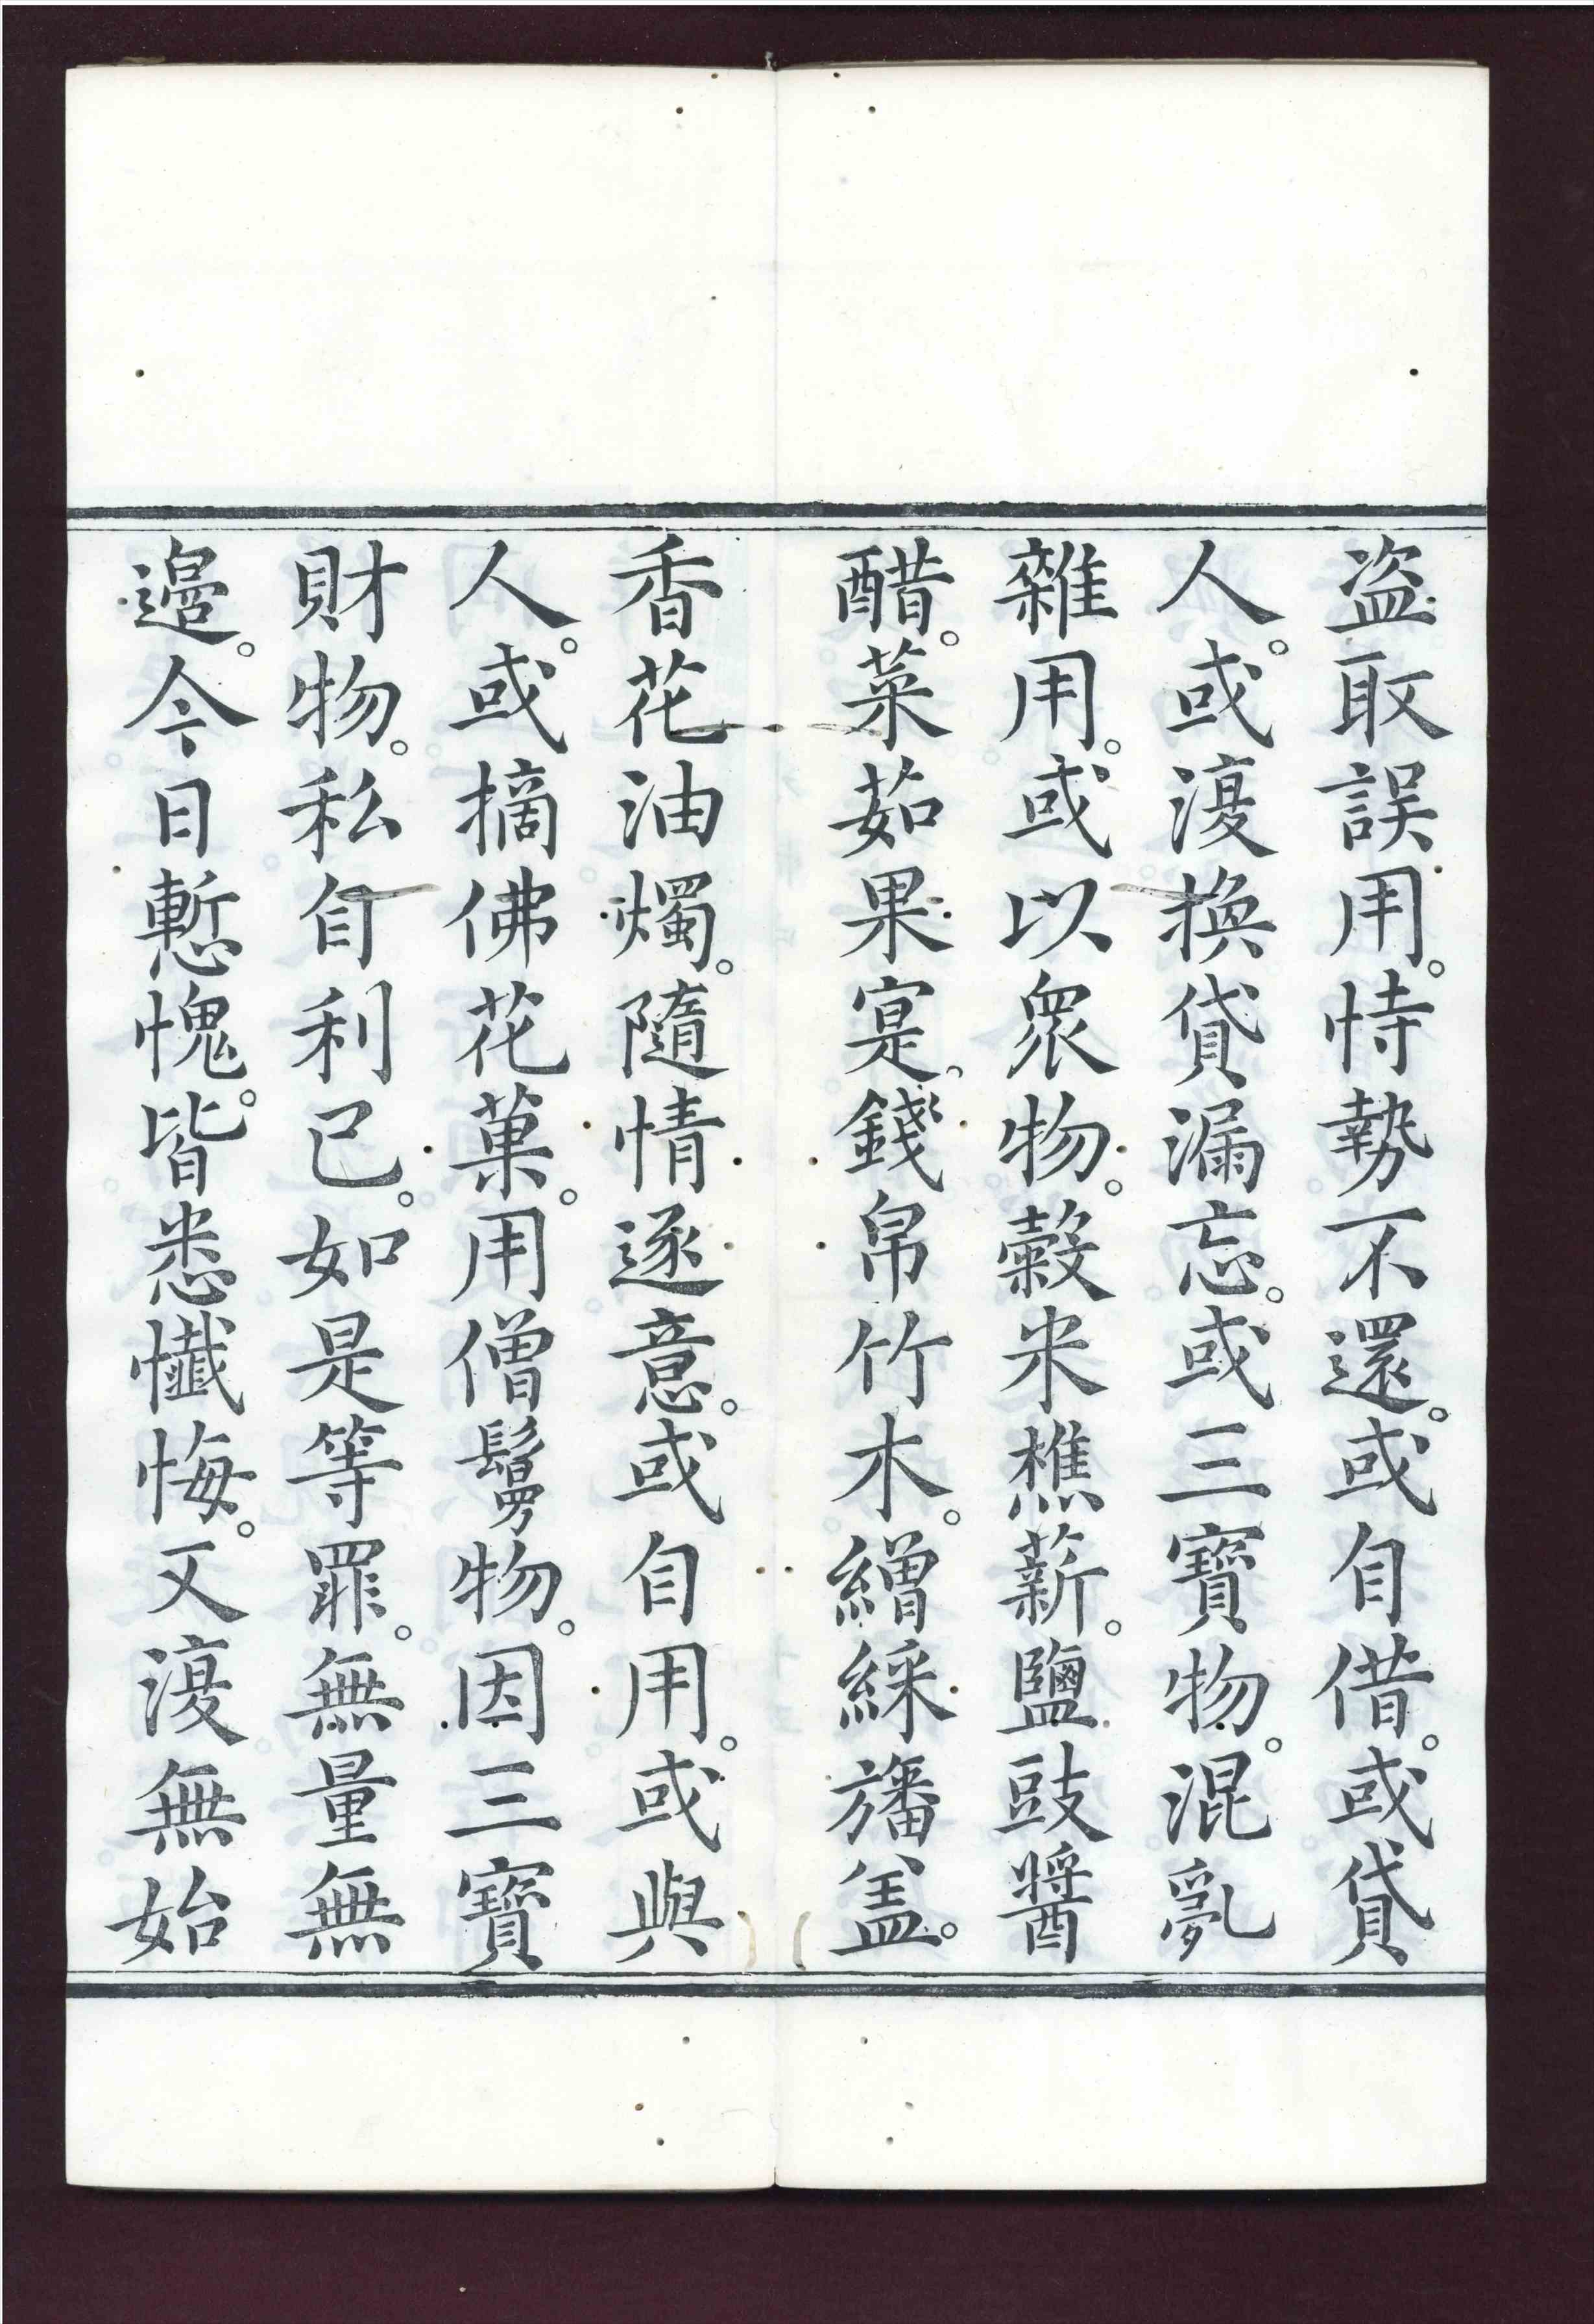 盜取誤用。恃勢不還。或自借。或貸
人。或復換貸漏忘。或三寶物。混亂
雜用。或以眾物。穀米樵薪。鹽豉醬
醋。菜茹果寔。錢帛竹木。繒綵旛盖。
香花油燭。隨情逐意。或自用。或與
人。或摘佛花菓。用僧鬘物。因三寶
財物。私自利己。如是等罪。無量無
邊。今日慙愧。皆悉懺悔。又復無始